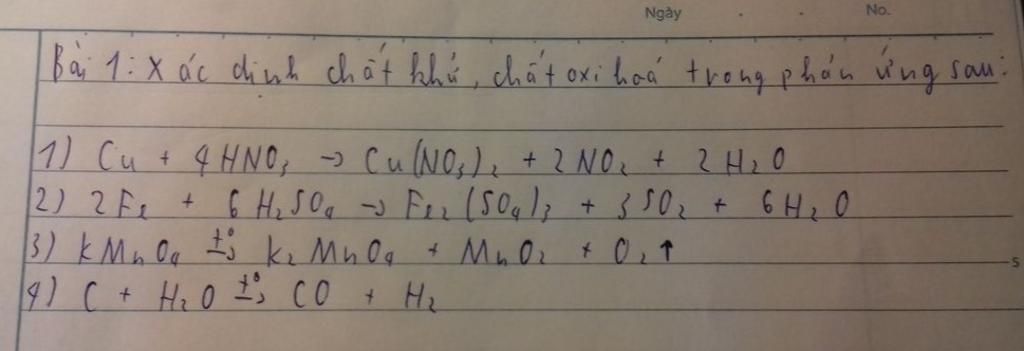 Ngày No.
Bài 1: Xác định chất khử, chất oxi hoá trong phản ứng sau:
1) Cu + 4HNO₃ → Cu(NO₃)₂ + 2NO₂ + 2H₂O
2) 2Fe + 6H₂SO₄ → Fe₂(SO₄)₃ + 3SO₂ + 6H₂O
3) KMnO₄ t°→ K₂MnO₄ + MnO₂ + O₂↑
4) C + H₂O t°→ CO + H₂